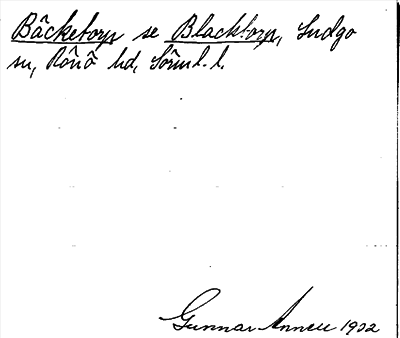 Bäcketorp se Blacktorp, Ludgo
sn, Rönö hd, Sörml. l.
Gunnar Annell 1932